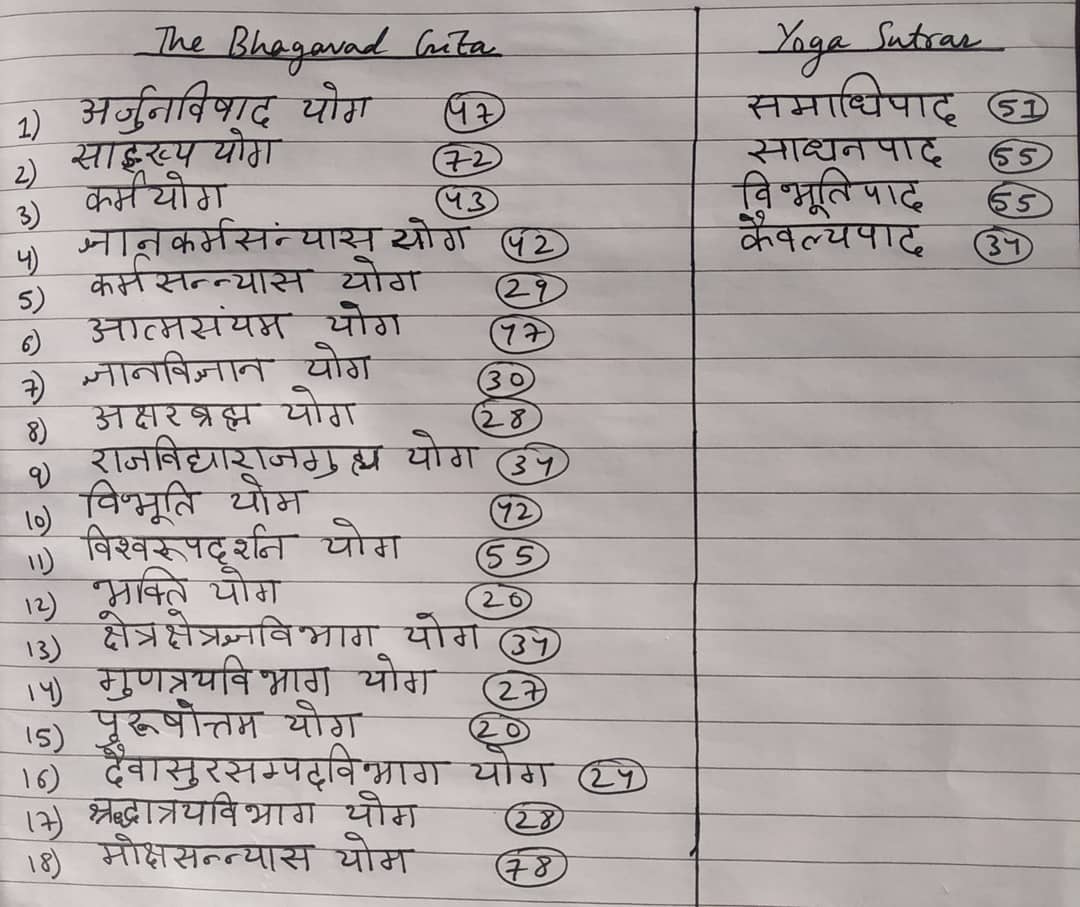 The Bhagavad Gita
1) अर्जुनविषाद योग 47
2) साङ्ख्य योग 72
3) कर्म योग 43
4) ज्ञानकर्मसंन्यास योग 42
5) कर्मसन्न्यास योग 29
6) आत्मसंयम योग 47
7) ज्ञानविज्ञान योग 30
8) अक्षरब्रह्म योग 28
9) राजविद्याराजगुह्य योग 34
10) विभूति योग 42
11) विश्वरूपदर्शन योग 55
12) भक्ति योग 20
13) क्षेत्रक्षेत्रज्ञविभाग योग 34
14) गुणत्रयविभाग योग 27
15) पुरूषोत्तम योग 20
16) दैवासुरसम्पदविभाग योग 24
17) श्रद्धात्रयविभाग योग 28
18) मोक्षसन्न्यास योग 78
Yoga Sutras
समाधिपाद 51
साधनपाद 55
विभूतिपाद 55
कैवल्यपाद 34